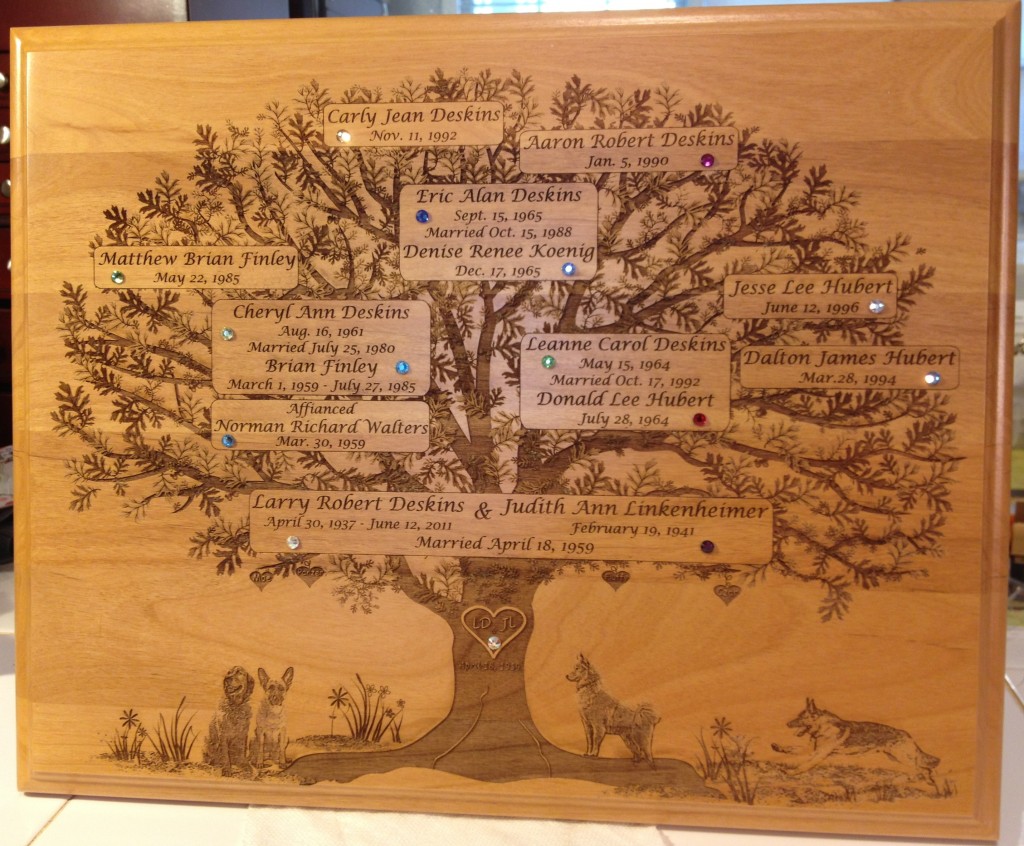 Carly Jean Deskins
Nov. 11, 1992
Aaron Robert Deskins
Jan. 5, 1990
Eric Alan Deskins
Sept. 15, 1965
Married Oct. 15, 1988
Denise Renee Koenig
Dec. 17, 1965
Matthew Brian Finley
May 22, 1985
Jesse Lee Hubert
June 12, 1996
Cheryl Ann Deskins
Aug. 16, 1961
Married July 25, 1980
Brian Finley
March 1, 1959 - July 27, 1985
Leanne Carol Deskins
May 15, 1964
Married Oct. 17, 1992
Donald Lee Hubert
July 28, 1964
Dalton James Hubert
Mar.28, 1994
Affianced
Norman Richard Walters
Mar. 30, 1959
Larry Robert Deskins & Judith Ann Linkenheimer
April 30, 1937 - June 12, 2011
February 19, 1941
Married April 18, 1959
LD JL